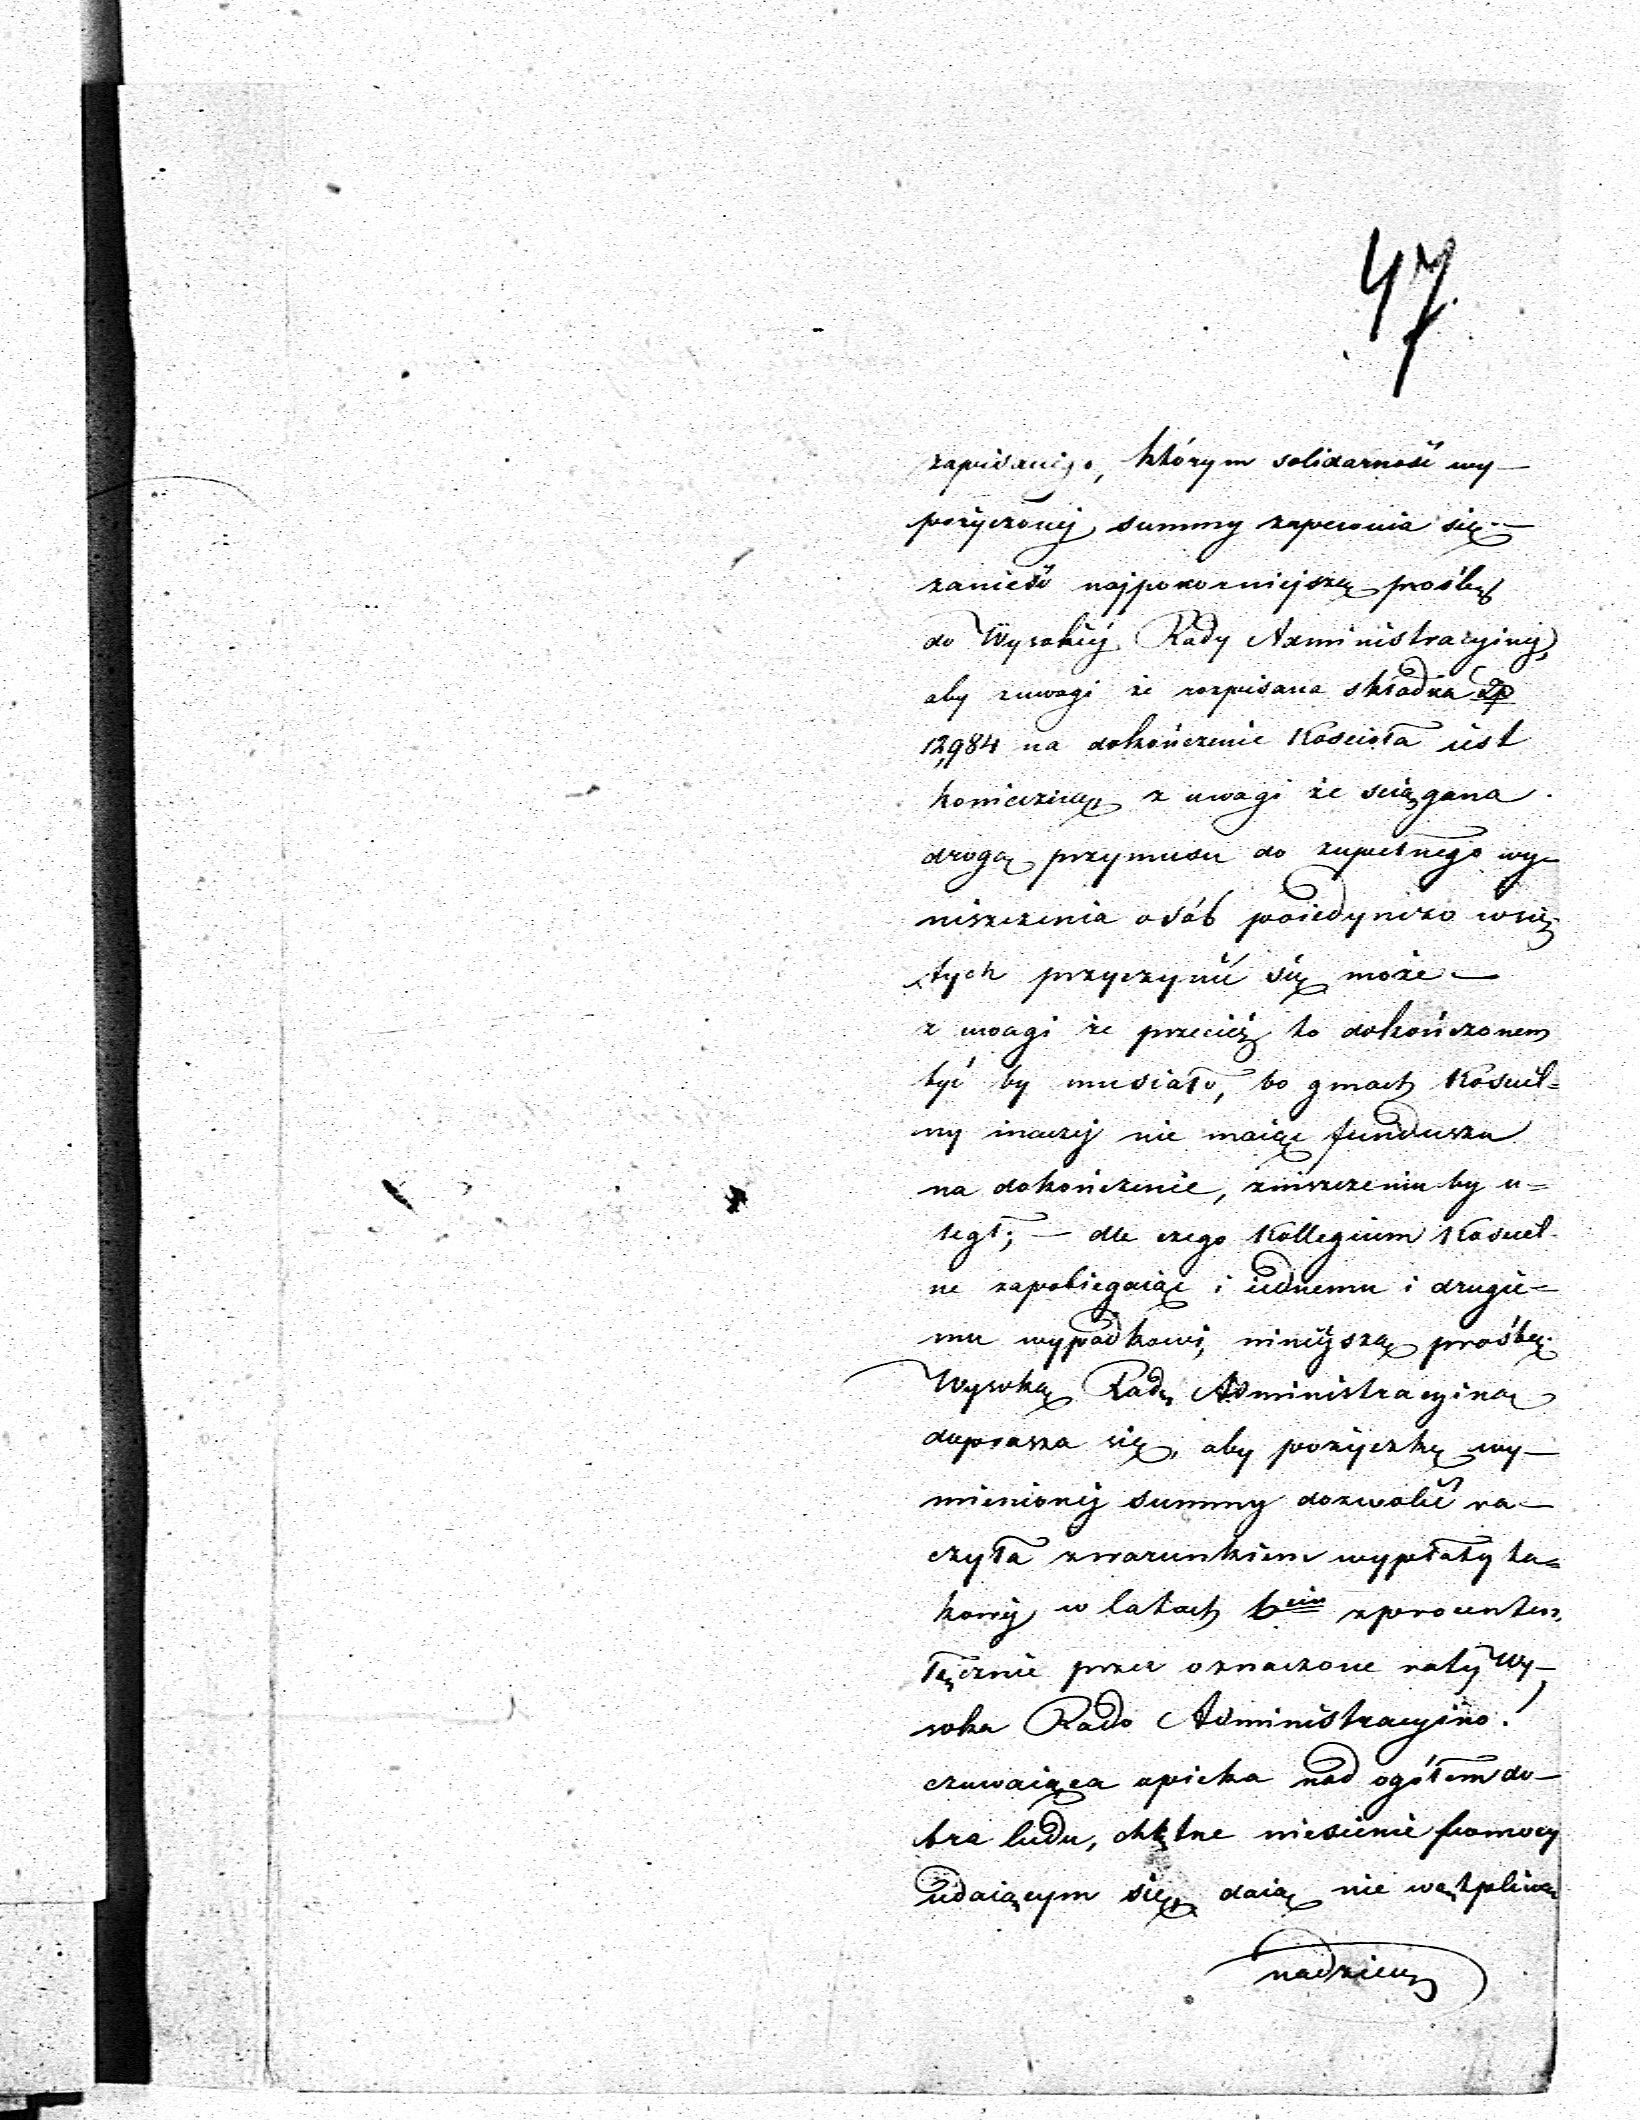 47
zapisanego, którym solidarność wy–
pożyczonej summy zapewnia się –
zanieść najpokorniejszą prośbę
do Wysokiéj Rady Administracyinéj,
aby zuwagi że rozpisana składka Zp
12,984 na dokończenie Kościoła iest
konieczną z uwagi że sciągana
drogą przymusu do zupełnego wy–
niszczenia osób poiedynczo wzię–
tych przyczynić się może –
z uwagi że przecież to dokończonem
być by musiało, bo gmach Kościel=
ny inaczej nie maiąc funduszu
na dokończenie, zniszczeniu by u=
legł; – dla czego Kollegium Kościel–
ne zapobiegaiąc i iednemu i drugie–
mu wypadkowi, niniejszą prośbą
Wysoką Radę Administracyiną
doprasza się, aby pożyczkę wy–
mienionéj summy dozwolić ra–
czyła zwarunkiem wypłaty ta=
kowéj w latach 6ciu zprocentem
łącznie przez oznaczone raty Wy–
soka Rado Administracyino!
czuwaiąca opieka nad ogółem do–
bra ludu, chętne niesienie pomocy
udaiącym się, daią nie wątpliwą
nadzieię